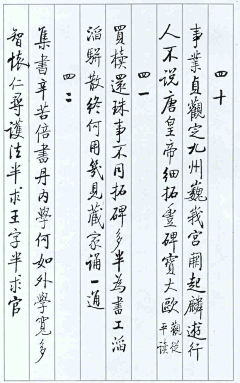 四十
事業貞觀定九州巍我宮閣起麟遊行
人不說唐皇帝細拓豐碑寶大歐觀從平讀
四一
買櫝還珠事不同拓碑多半為書工滔
滔駢散終何用幾見藏家誦一通
四二
集書辛苦倍書丹內學何如外學寬多
智懷仁尊護法半求王字半求官